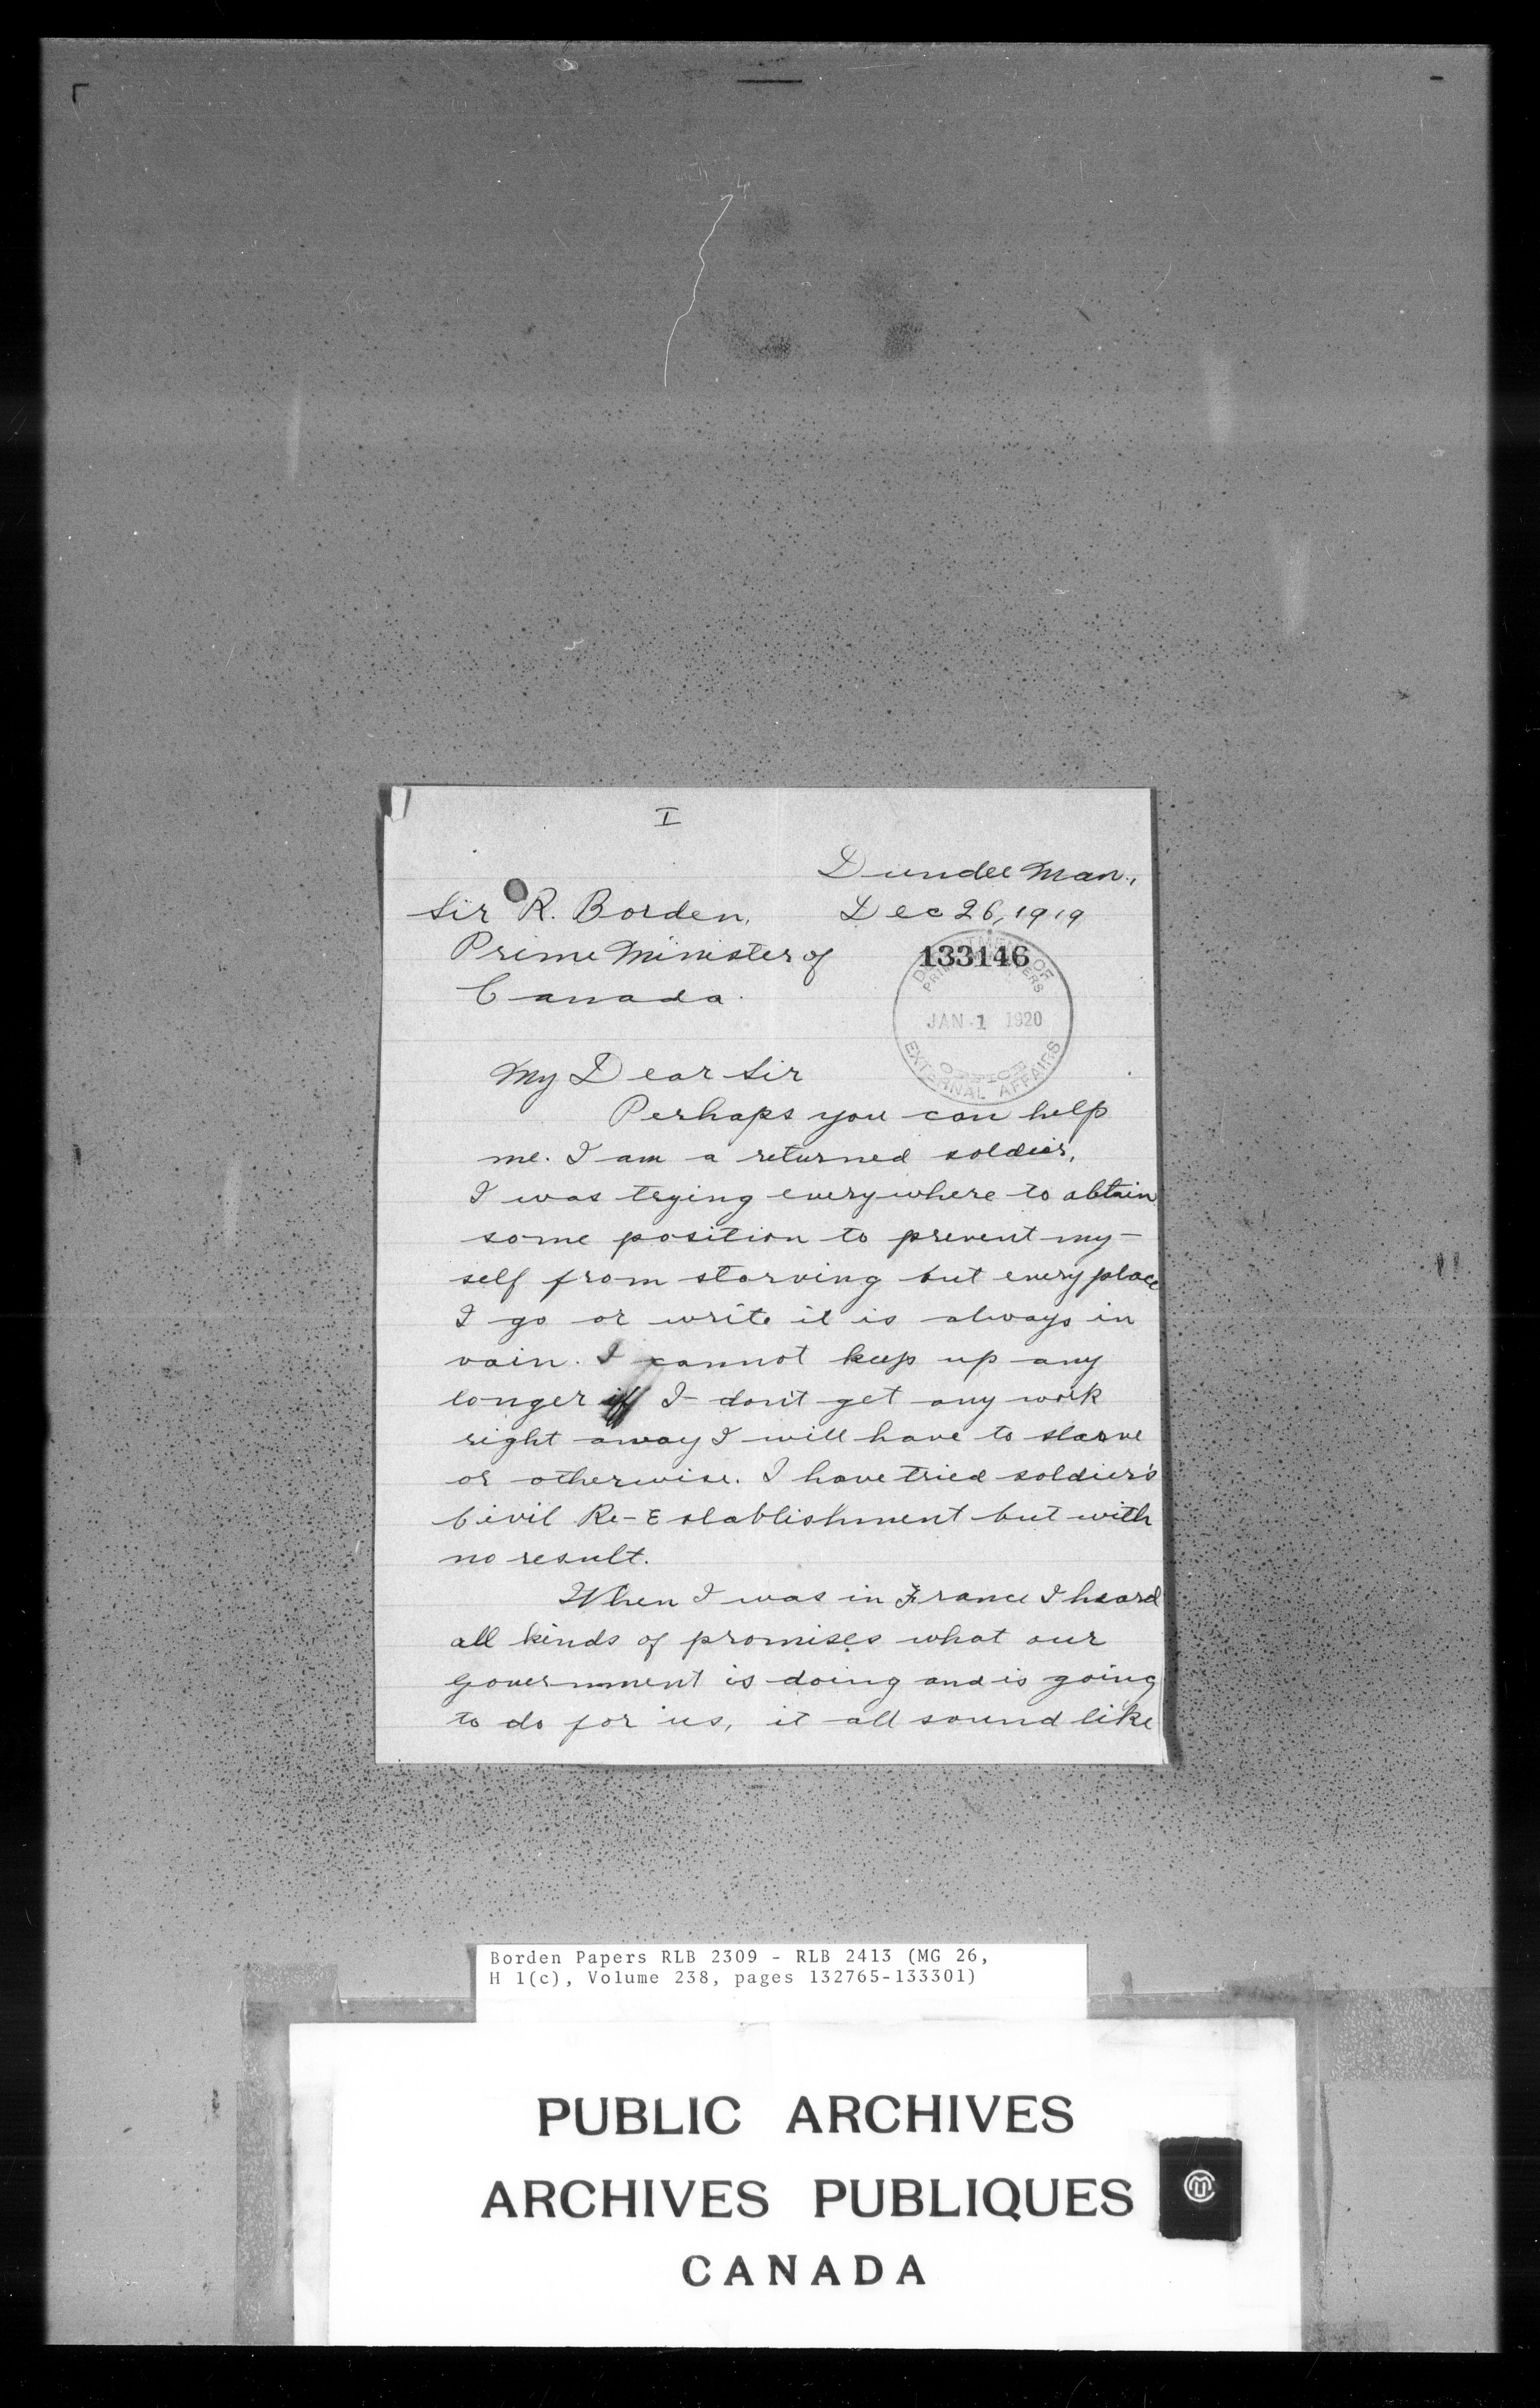 I
Dundee Man.,
Sir R. Borden, Dec 26, 1919
Prime Minister of
Canada.
133146
DEPARTMENT OF
PRIME MINISTERS
JAN 1 1920
OFFICE
EXTERNAL AFFAIRS
My Dear Sir
Perhaps you can help
me. I am a returned soldier,
I was trying everywhere to obtain
some position to prevent my-
self from starving but every place
I go or write it is always in
vain. I cannot keep up any
longer if I don't get any work
right away I will have to starve
or otherwise. I have tried soldier's
Civil Re-Establishment but with
no result.
When I was in France I heard
all kinds of promises what our
government is doing and is going
to do for us, it all sound like
Borden Papers RLB 2309 - RLB 2413 (MG 26,
H 1(c), Volume 238, pages 132765-133301)
PUBLIC ARCHIVES
ARCHIVES PUBLIQUES
CANADA